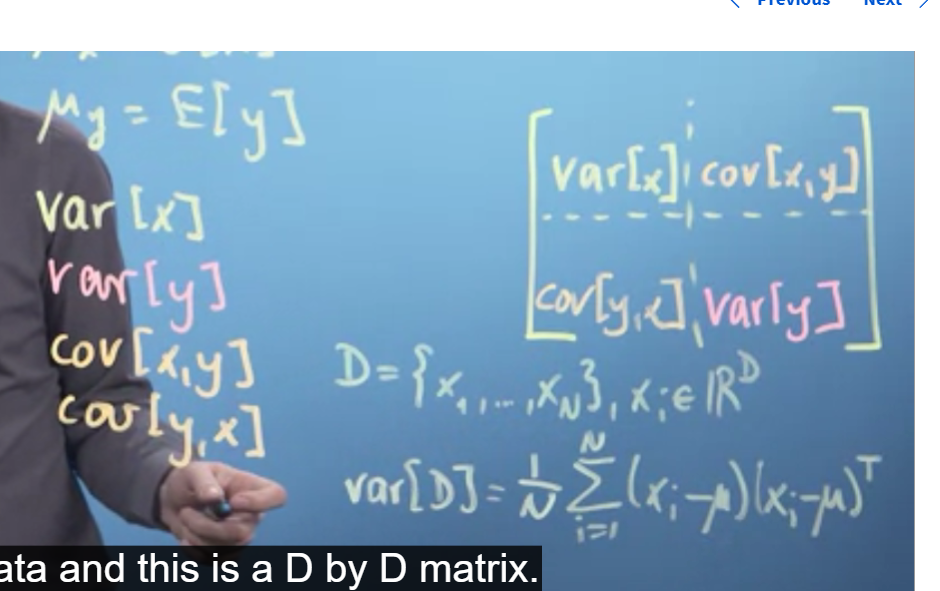 Previous Next
μy = E[y]
var[x]
var[y]
cov[x,y]
cov[y,x]
var[x] cov[x,y]
cov[y,x] var[y]
D={x₁,...,x_N}, xᵢ∈ℝᴰ
var[D]=1/N Σᵢ₌₁ᴺ(xᵢ-μ)(xᵢ-μ)ᵀ
and this is a D by D matrix.